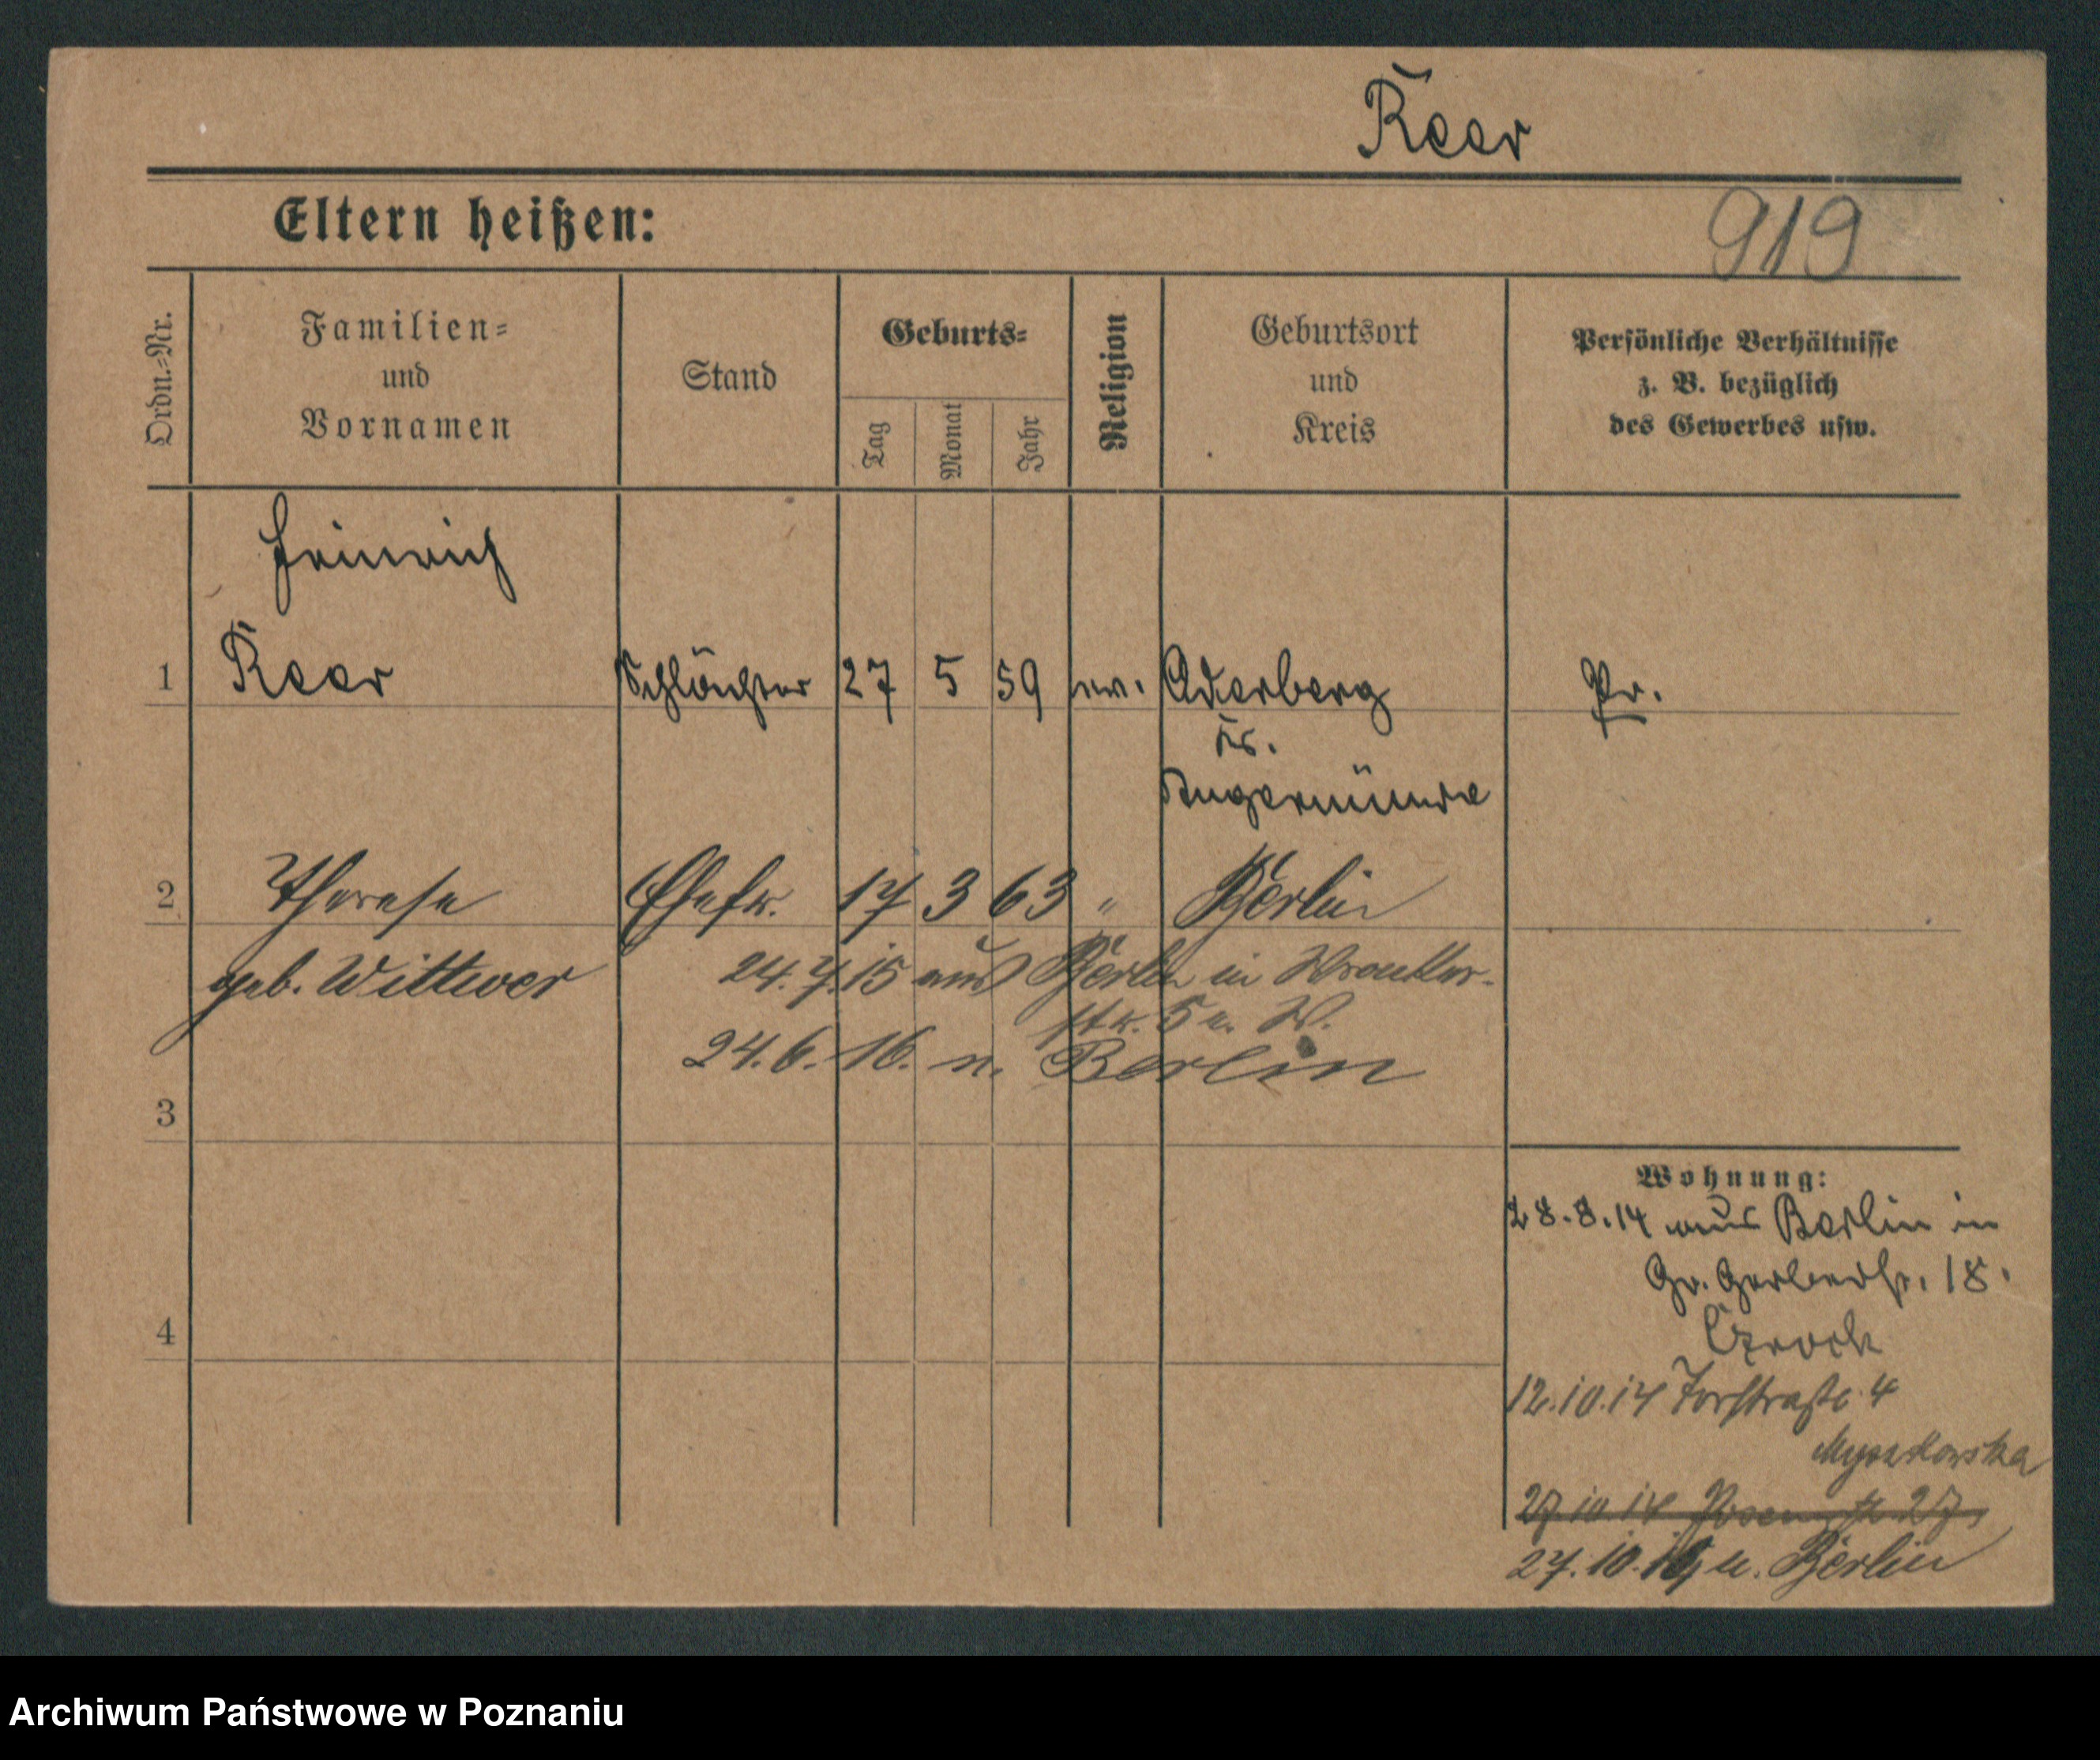 Kear
Eltern heißen:
919
Ordn.=Nr.
Familien=
und
Vornamen
Stand
Geburts=
Tag
Monat
Jahr
Religion
Geburtsort
und
Kreis
Persönliche Verhältnisse
z. B. bezüglich
des Gewerbes usw.
Heinrich
1 Schlächter 27 5 59 ev. Oderberg Pr.
Kr.
Angermünde
2 Therese Ehefr. 17 3 63 " Berlin
geb. Wittwer 24.7.15 aus Berlin in
str. 5 b. W.
24.6.16. n. Berlin
3
Wohnung:
28.8.14 aus Berlin in
Gr. Gerberstr. 18.
4
12.10.14 Torstraße 4
Myszkowska
27.10.14 27
27.10.14 n. Berlin
Archiwum Państwowe w Poznaniu